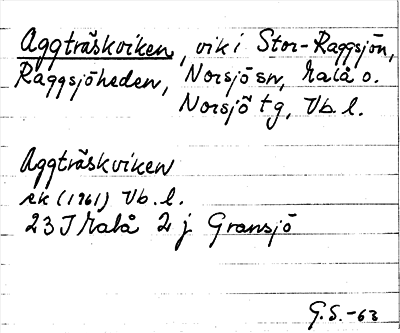 Aggträskviken, vik i Stor-Raggsjön,
Raggsjöheden, Norsjö sn, Malå o.
Norsjö tg, Vb. l.
Aggträskviken
ek (1961) Vb. l.
23 J Malå 2 j Gransjö
G.S.-63